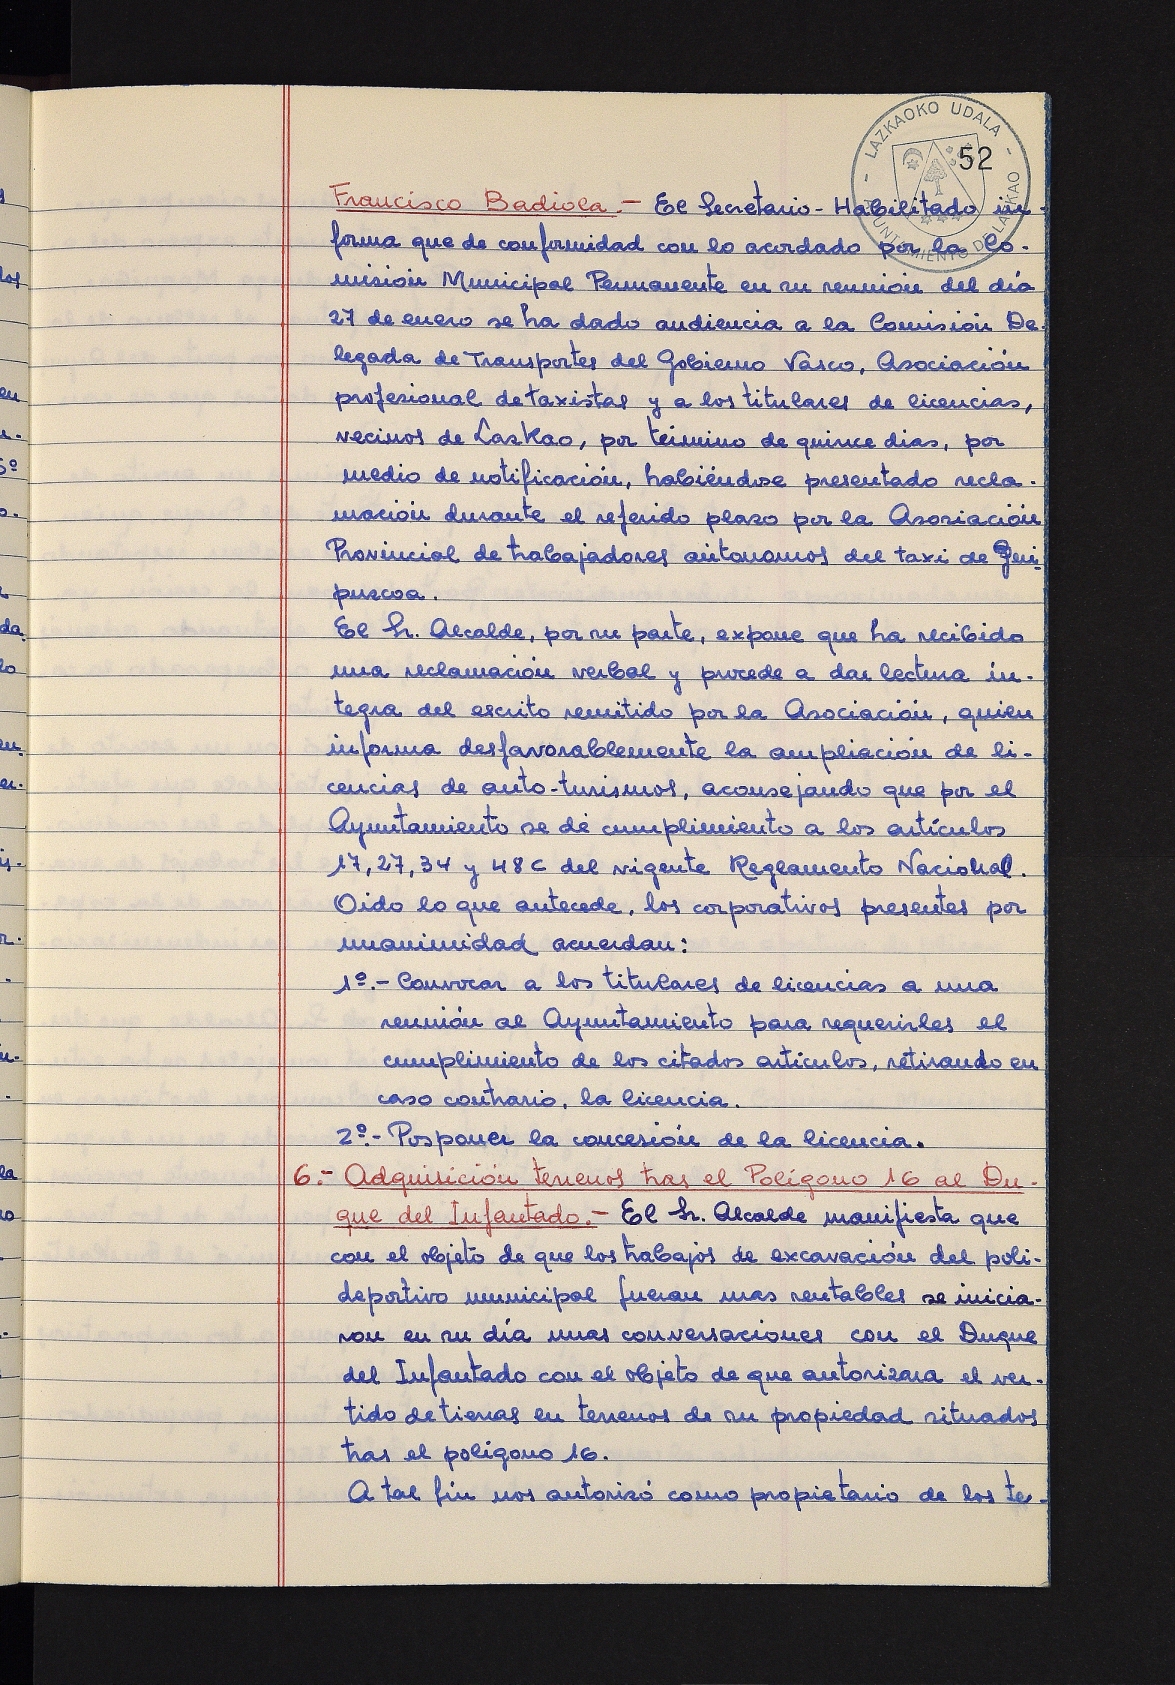 - LAZKAOKO UDALA -
AYUNTAMIENTO DE LAZKAO
52
Francisco Badiola.- El Secretario-Habilitado in-
forma que de conformidad con lo acordado por la Co-
misión Municipal Permanente en su reunión del día
27 de enero se ha dado audiencia a la Comisión De-
legada de Transportes del Gobierno Vasco, Asociación
profesional de taxistas y a los titulares de licencias,
vecinos de Lazkao, por término de quince dias, por
medio de notificación, habiéndose presentado recla-
mación durante el referido plazo por la Asociación
Provincial de trabajadores autonomos del taxi de Gui-
puzcoa.
El Sr. Alcalde, por su parte, expone que ha recibido
una reclamación verbal y procede a dar lectura in-
tegra del escrito remitido por la Asociación, quien
informa desfavorablemente la ampliación de li-
cencias de auto-turismos, aconsejando que por el
Ayuntamiento se dé cumplimiento a los artículos
17, 27, 34 y 48 C del vigente Reglamento Nacional.
Oido lo que antecede, los corporativos presentes por
unanimidad acuerdan:
1º.- Convocar a los titulares de licencias a una
reunión al Ayuntamiento para requerirles el
cumplimiento de los citados artículos, retirando en
caso contrario, la licencia.
2º.- Posponer la concesión de la licencia.
6.- Adquisición terrenos tras el Polígono 16 al Du-
que del Infantado.- El Sr. Alcalde manifiesta que
con el objeto de que los trabajos de excavación del poli-
deportivo municipal fueran mas rentables se inicia-
ron en su día unas conversaciones con el Duque
del Infantado con el objeto de que autorizara el ver-
tido de tierras en terrenos de su propiedad situados
tras el polígono 16.
A tal fin nos autorizó como propietario de los te-